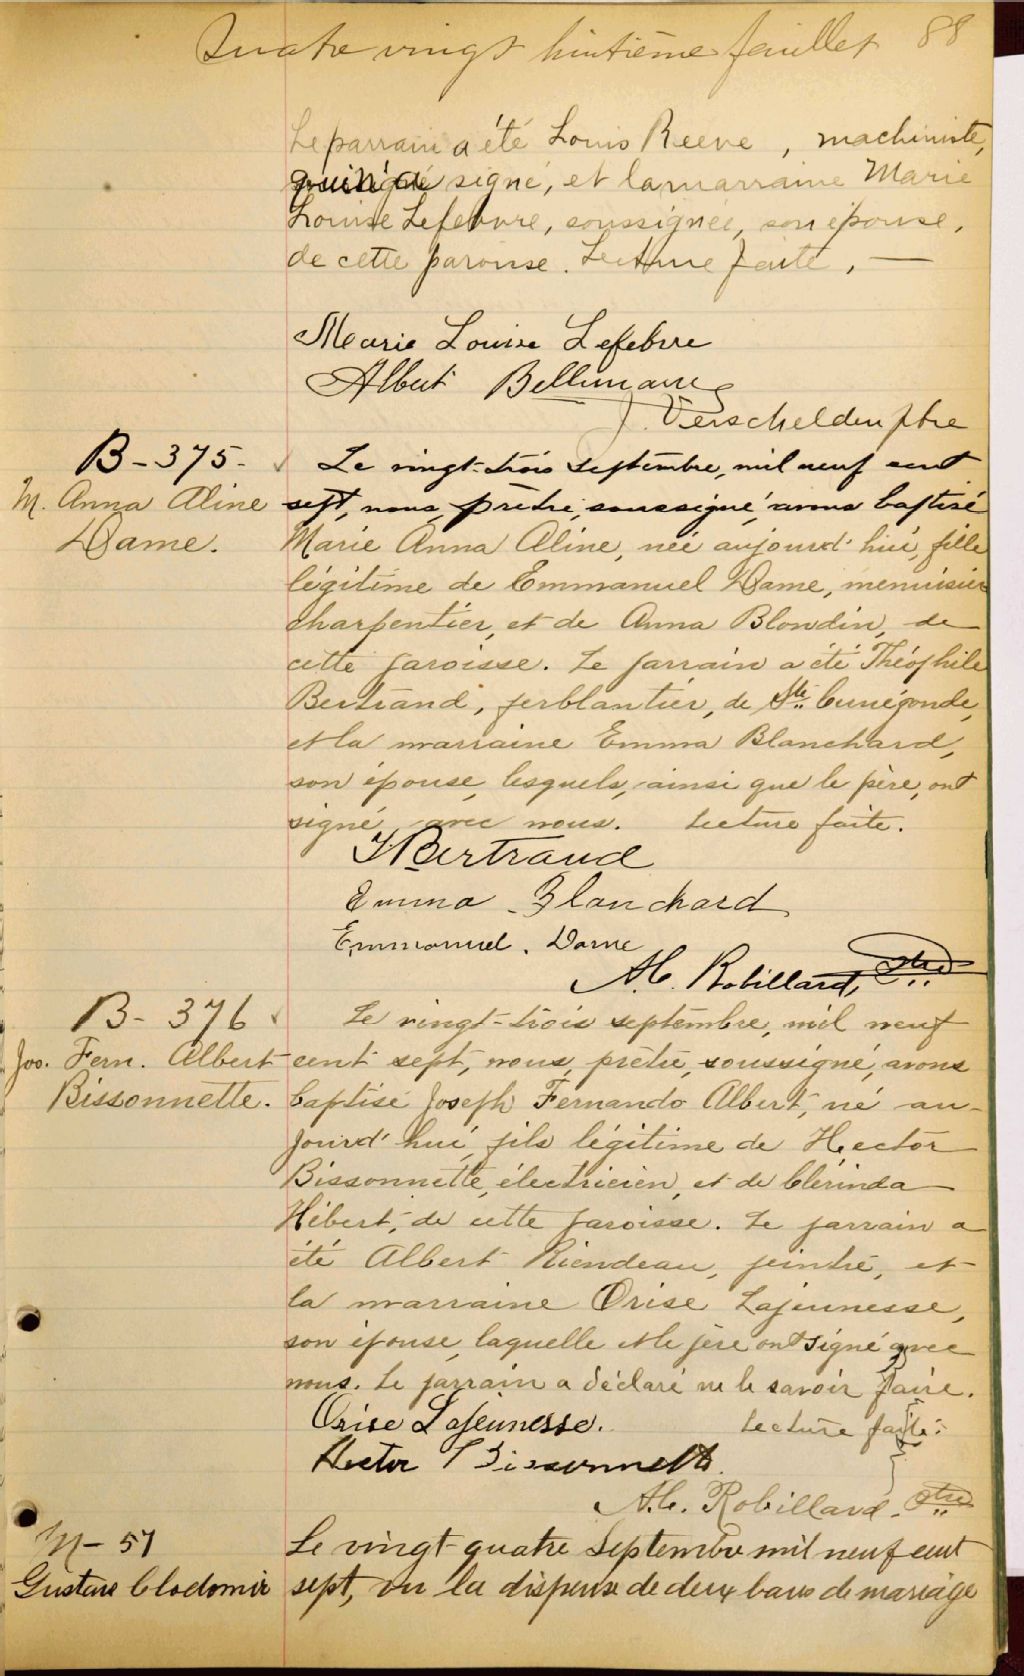 Quatre vingt huitième feuillet 88
Le parrain a été Louis Reeve, machiniste,
qui n'a signé, et la marraine Marie
Louise Lefebvre, soussignée, son épouse,
de cette paroisse. Lecture faite, —
Marie Louise Lefebvre
Albert Bellemare
J. Verschelden ptre
B-375-
M. Anna Aline
Dame.
Le vingt-trois septembre, mil neuf cent
sept, nous, prêtre, soussigné, avons baptisé
Marie Anna Aline, née aujourd'hui, fille
légitime de Emmanuel Dame, menuisier
charpentier, et de Anna Blondin, de
cette paroisse. Le parrain a été Théophile
Bertrand, ferblantier, de Ste. Cunégonde,
et la marraine Emma Blanchard,
son épouse, lesquels, ainsi que le père, ont
signé avec nous. Lecture faite.
T Bertrand
Emma Blanchard
Emmanuel. Dame
A.C. Robillard, Ptre
B- 376
Jos. Fern. Albert
Bissonnette.
Le vingt-trois septembre, mil neuf
cent sept, nous, prêtre, soussigné, avons
baptisé Joseph Fernando Albert, né au-
jourd'hui, fils légitime de Hector
Bissonnette, électricien, et de Clérinda
Hébert, de cette paroisse. Le parrain a
été Albert Riendeau, peintre, et
la marraine Orise Lajeunesse,
son épouse, laquelle et le père ont signé avec
nous. Le parrain a déclaré ne le savoir faire.
Lecture faite.
Orise Lajeunesse.
Hector Bissonnette.
A.C. Robillard. Ptre
M- 57
Gustave Clodomir
Le vingt-quatre Septembre mil neuf cent
sept, vu la dispense de deux bans de mariage